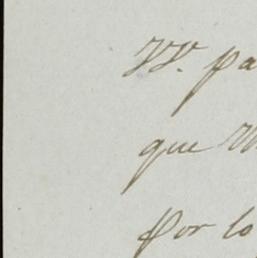 VV. pa
que V
por lo